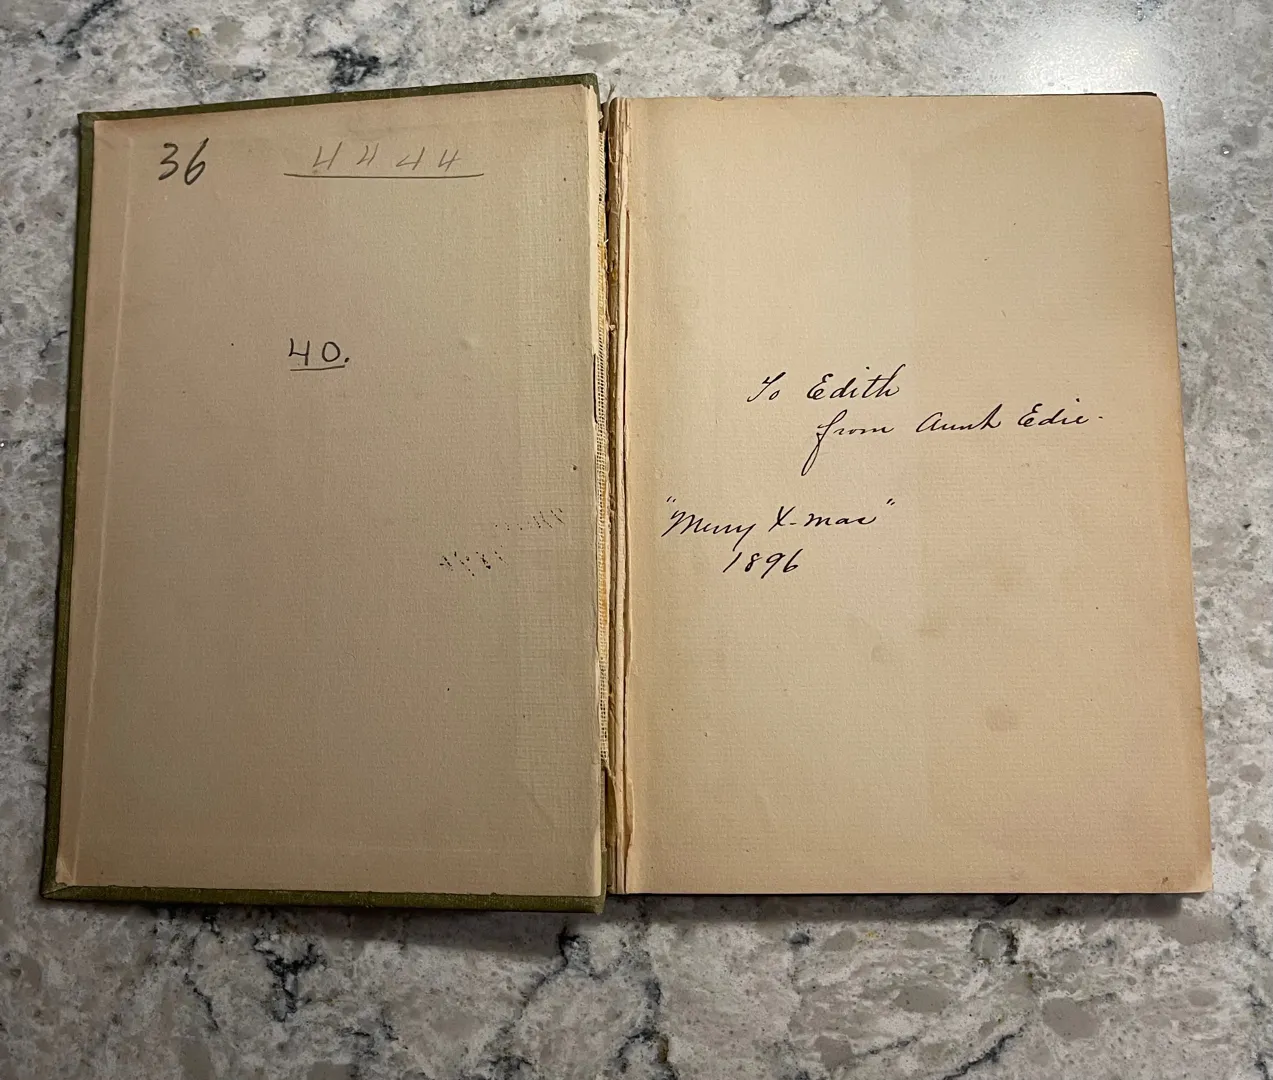 36
4444
40.
To Edith
from Aunt Edie.
"Merry X-mas"
1896